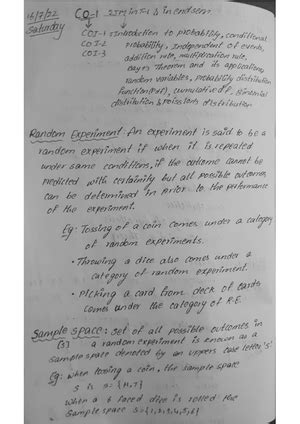 16/7/22
Saturday
CO-1 25m in T-1 & in end sem
COI-1 Introduction to probability, conditional
COI-2 Probability, Independent of events,
COI-3 addition rule, multiplication rule,
Bayes Theorem and its applications,
random variables, probability distribution
function (Pdf), cumulative d.f, Binomial
distribution & poission distribution
Random Experiment: An experiment is said to be a
random experiment if when it is repeated
under same conditions, if the outcome cannot be
predicted with certainity but all possible outcomes
can be determined in prior to the performance
of the experiment.
Eg: Tossing of a coin comes under a category
of random experiments.
• Throwing a dice also comes under a
category of random experiment.
• Picking a card from deck of cards
comes under the category of R.E.
Sample space: set of all possible outcomes in
(S) a random experiment is known as a
sample space denoted by an uppers case letter 's'
Eg: when tossing a coin, the sample space
S is S = {H,T}
when a 6 faced dice is rolled the
sample space S = {1,2,3,4,5,6}